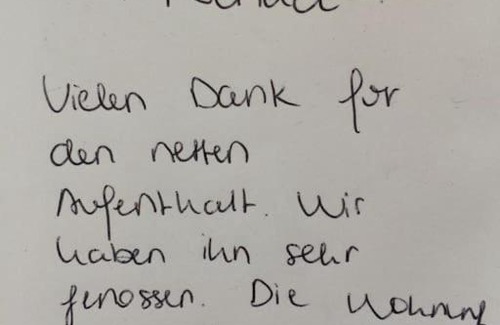 Vielen Dank for
den netten
Aufenthalt. Wir
haben ihn sehr
genossen. Die Wohnung